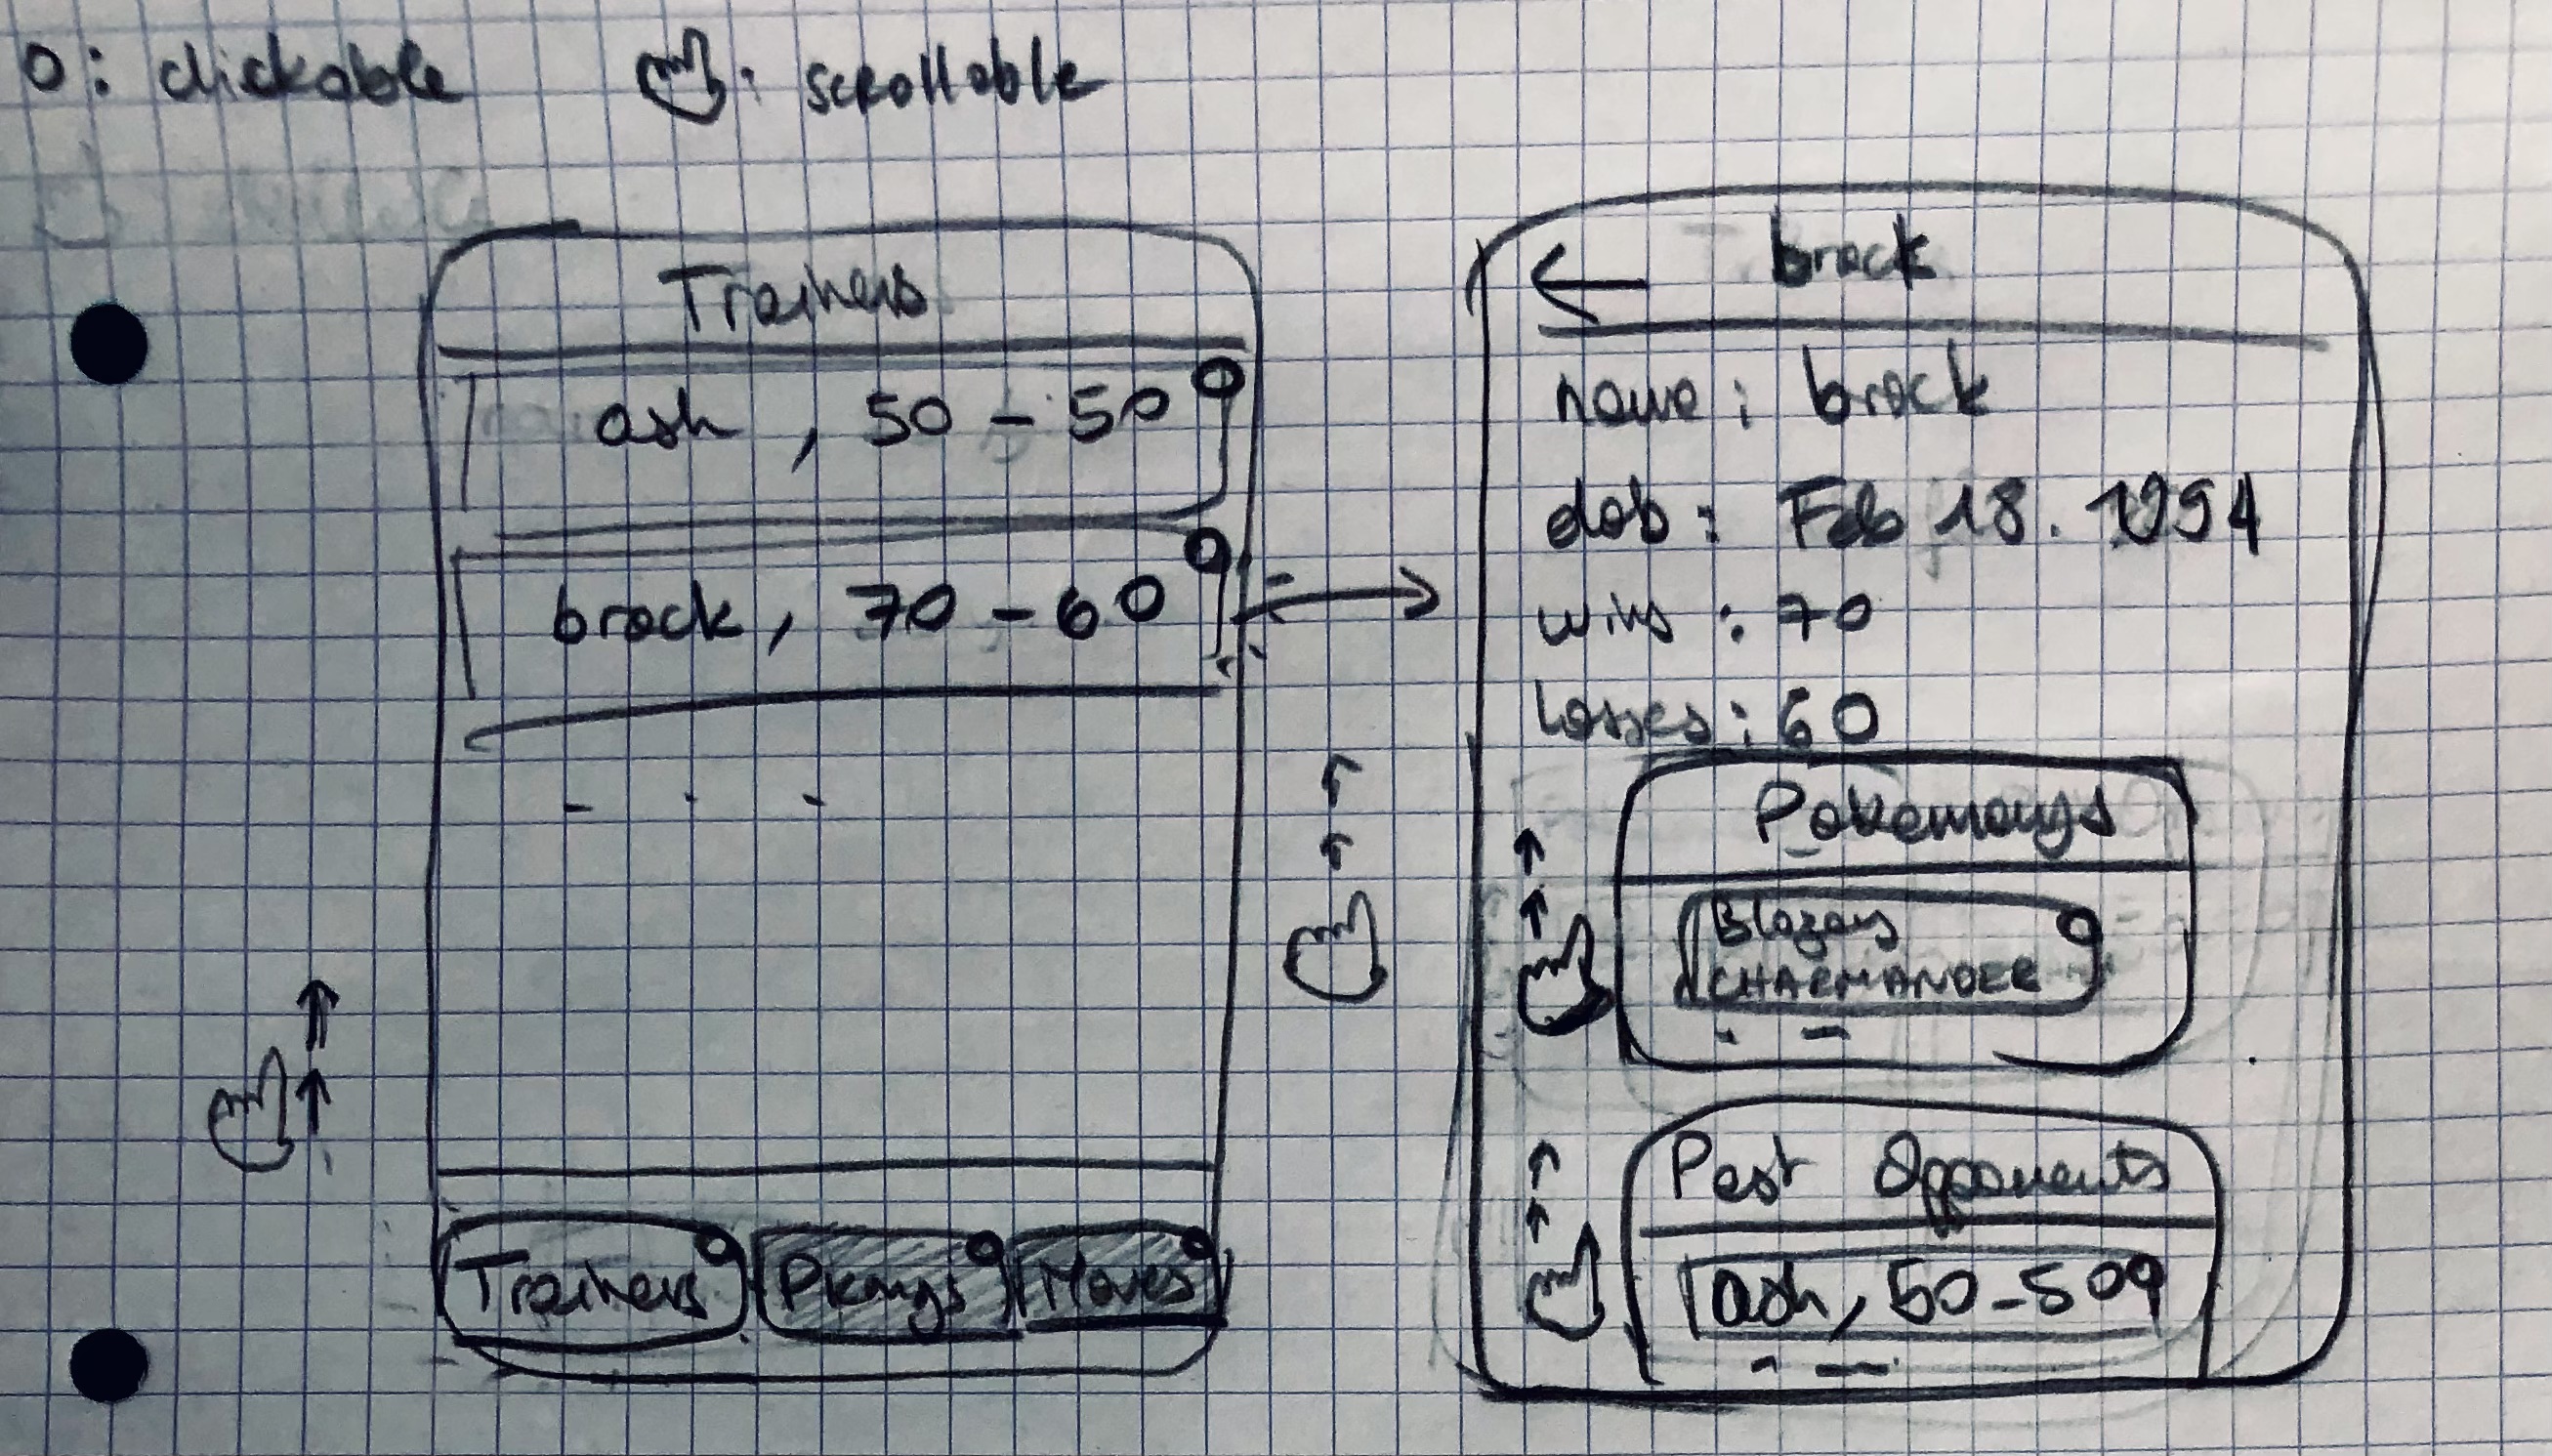 O: clickable
: scrollable
Trainers
ash, 50 - 50
brock, 70 - 60
- - -
Trainers
Pkmngs
Moves
← brock
name: brock
dob: Feb 18. 1994
wins: 70
losses: 60
Pokemongs
CHARMANDER
Past Opponents
ash, 50-50